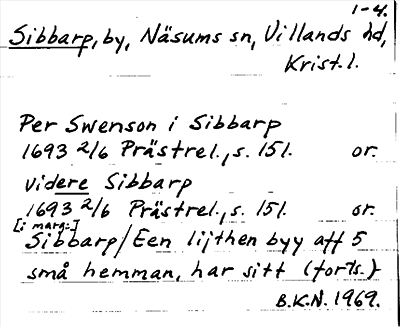 1-4.
Sibbarp, by, Näsums sn, Villands hd,
Krist. l.
Per Swenson i Sibbarp
1693 2/6 Prästrel., s. 151. or.
videre Sibbarp
1693 2/6 Prästrel., s. 151. or.
[i marg:]
Sibbarp/Een lijthen byy aff 5
små hemman, har sitt (forts.)
B.K.N. 1969.